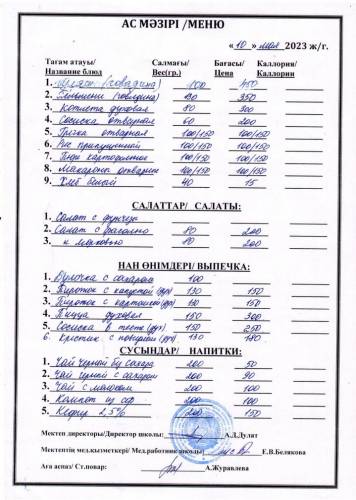 АС МӘЗІРІ /МЕНЮ
« 10 » мая 2023 ж/г.
Тағам атауы/ Салмағы/ Бағасы/ Каллория/
Название блюд Вес(гр.) Цена Каллории
1. (говядина) 100 450
2. Пельмени (говядина) 350
3. Котлета духовая 80 300
4. Сосиска отварная 60 200
5. Гречка отварная 100/150 100/150
6. Рис припущенный 100/150 100/150
7. Пюре картофельное 100/150 100/150
8. Макароны отварные 100/150 100/150
9. Хлеб белый 40 15
САЛАТТАР/ САЛАТЫ:
1. Салат с
2. Салат с фасолью 80 200
3. с морковью 80 200
НАН ӨНІМДЕРІ/ ВЫПЕЧКА:
1. Булочка с сахаром 100
2. Пирожок с капустой (дух) 130 150
3. Пирожок с картошкой (дух) 130 150
4. Пицца духовая 150 300
5. Сосиска в тесте (дух) 150 250
6. с повидлом (дух) 130 180
СУСЫНДАР/ НАПИТКИ:
1. Чай черный без сахара 200 50
2. Чай черный с сахаром 200 90
3. Чай с молоком 200 100
4. Компот из сф 200 100
5. Кефир 2,5% 200 150
Мектеп директоры/Директор школы: А.Л.Дулат
Мектептің мед.қызметкері/ Мед.работник школы: Е.В.Белякова
Аға аспаз/ Ст.повар: А.Журавлева